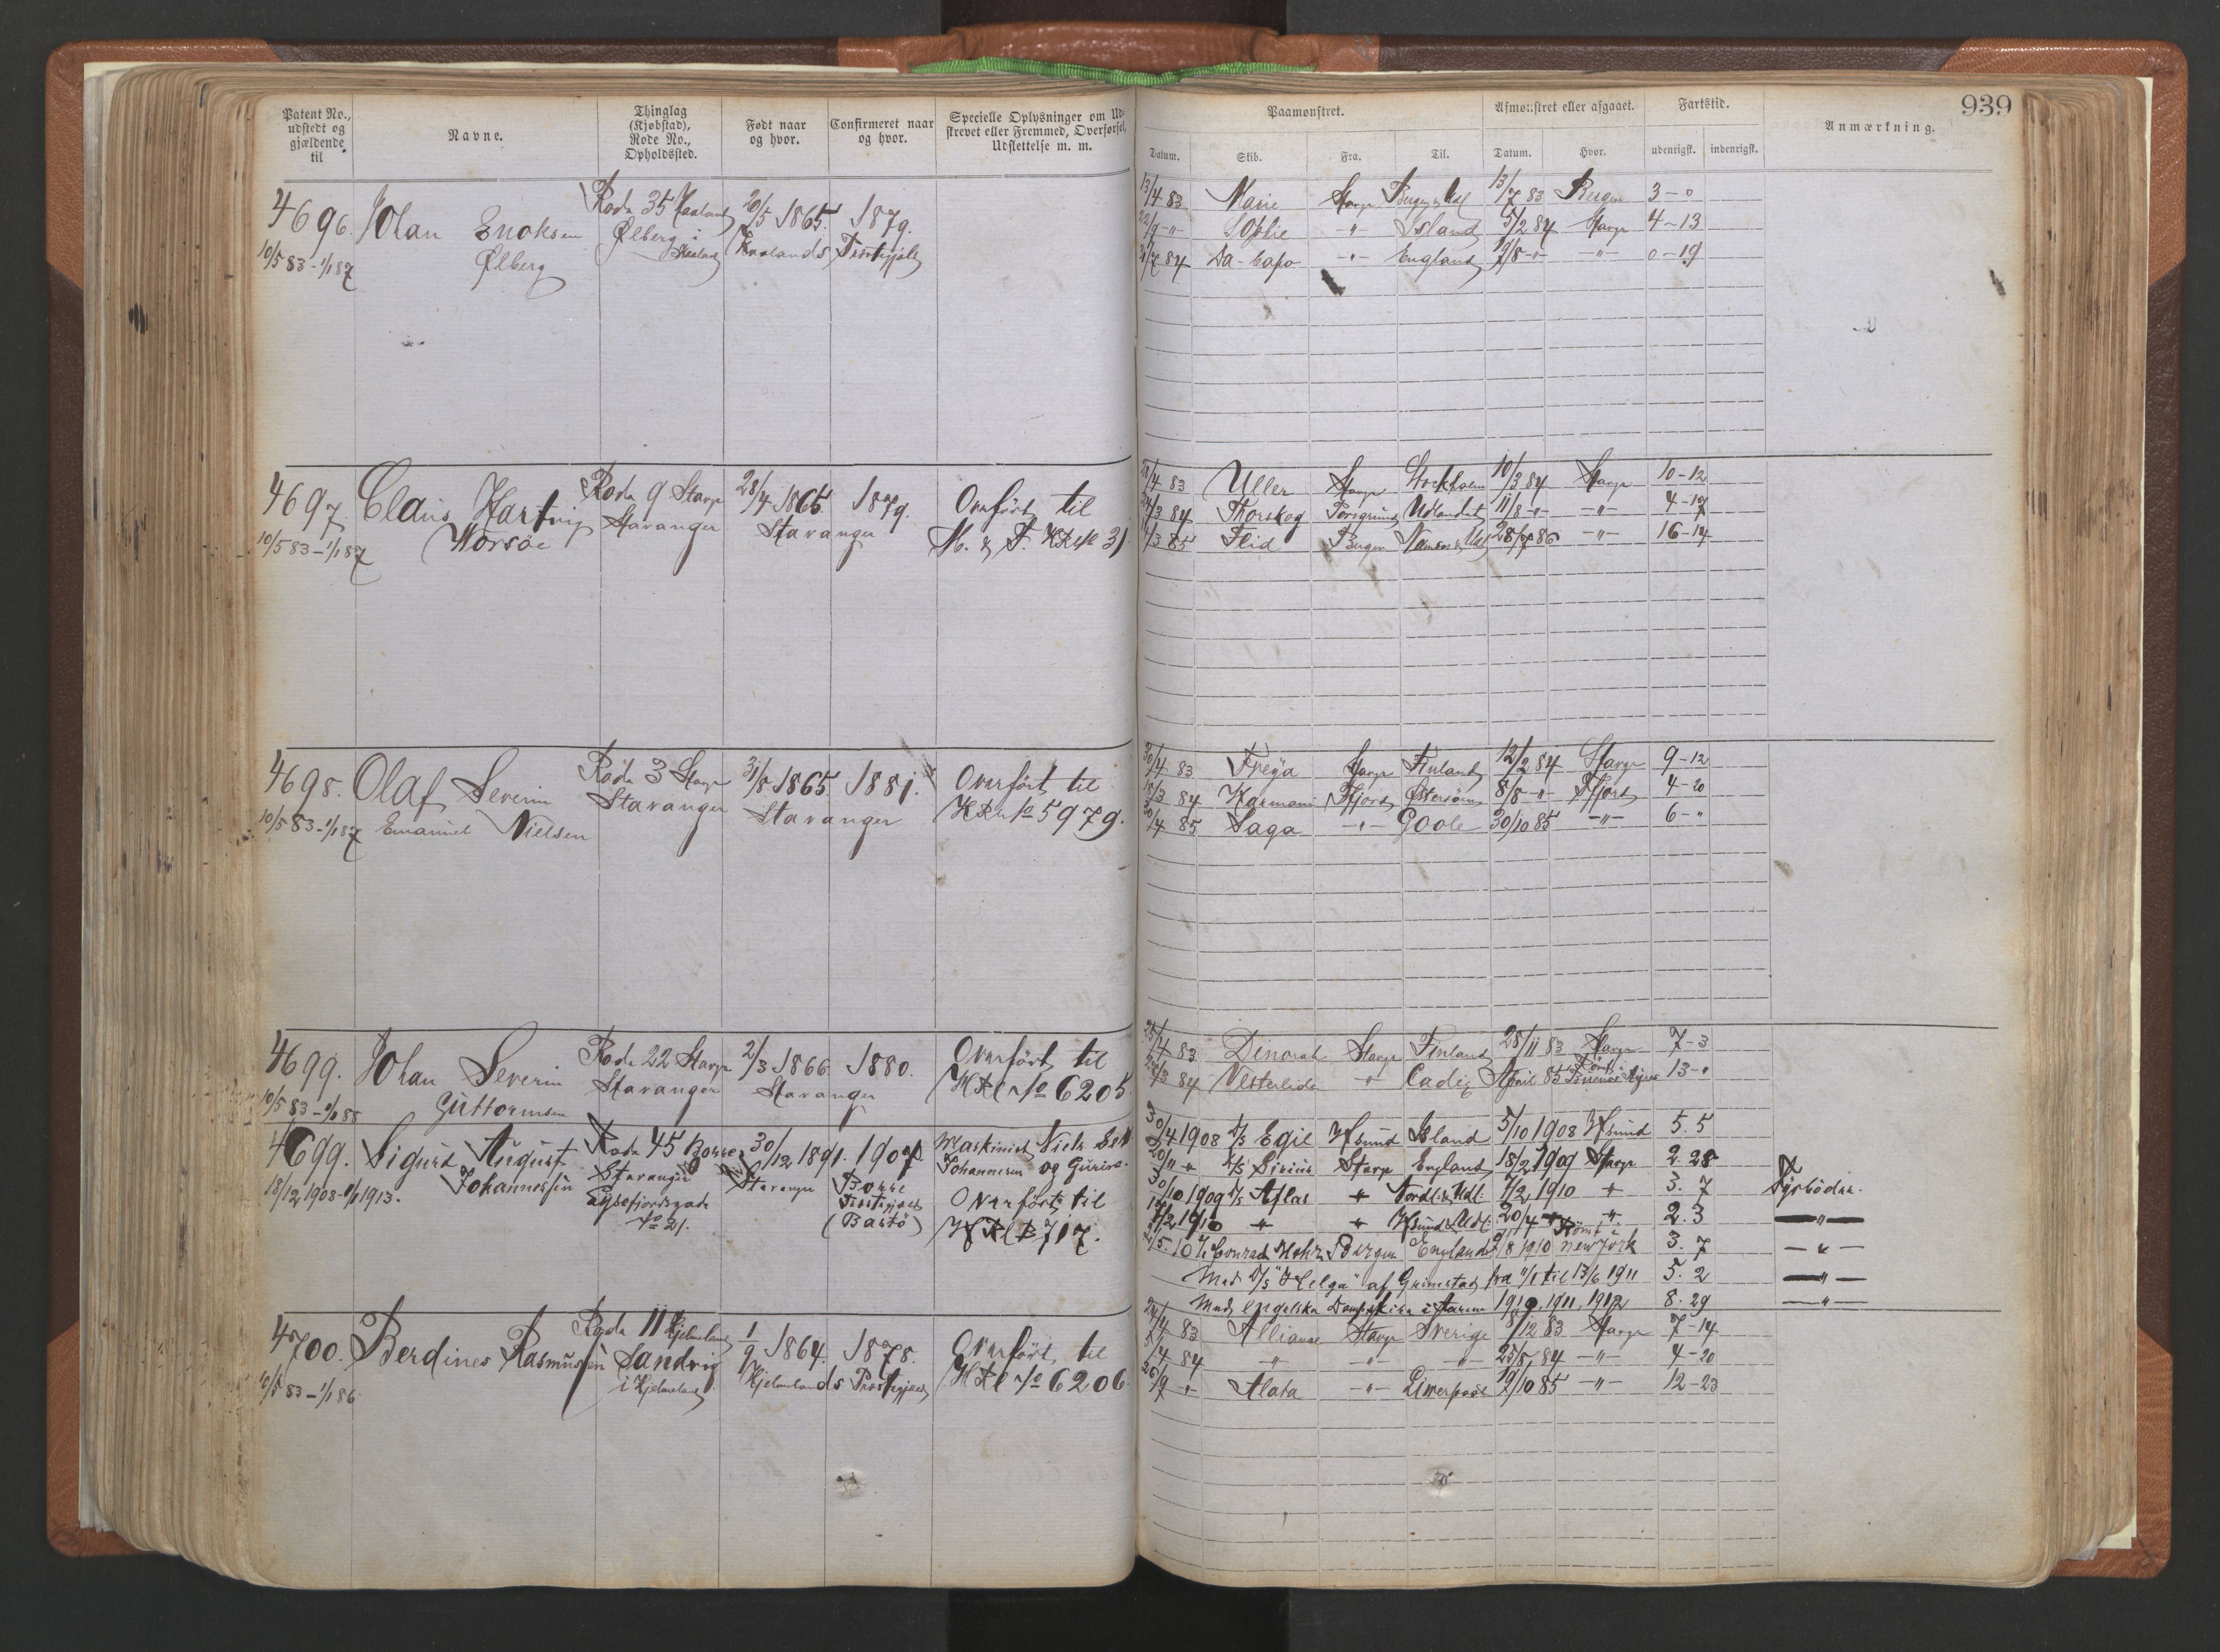 Patent No., udstedt og gjældende til
Navne.
Thinglag (Kjøbstad), Rode No., Opholdssted.
Født naar og hvor.
Confirmeret naar og hvor.
Specielle Oplysninger om Udskrevet eller Fremmed, Overførsel, Udslettelse m. m.
Paamønstret.
Afmønstret eller afgaaet.
Fartstid.
Anmærkning.
939
Datum. Skib. Fra. Til. Datum. Hvor. udenrigsk. indenrigsk.
4696. Johan Enoksen Rode 35 Haaland 20/5 1865. 1879.
10/5 83 - 1/1 87 Ølberg Ølberg i Haaland Haalands Præstegjeld
13/4 83 Marie Stavgr 13/7 83 Bergen 3 - 0
22/9 - " - Sophie - " - Island 5/2 84 Stavgr 4 - 13
Da-Capo - " - England 19/8 - " - - " - 0 - 19
4697. Claus Hartvig Rode 9 Stavgr 28/4 1865. 1879. Overført til
10/5 83 - 1/1 87 Worsøe Stavanger Stavanger M. & F. HRl No 31
83 Uller Stavgr Stockholm 10/3 84 Stavgr 10 - 12
84 Thorskog Porsgrund Udlandet 11/8 - " - - " - 4 - 17
85 Flid Bergen 28/7 86 - " - 16 - 14
4698. Olaf Severin Rode 3 Stavgr 31/8 1865. 1881. Overført til
10/5 83 - 1/1 87 Emanuel Nielsen Stavanger Stavanger HRl No 5979.
30/4 83 Freya Stavgr Finland 12/2 84 Stavgr 9 - 12
84 Ffjord Østersøen 8/8 - " - Ffjord 4 - 20
30/4 85 Saga - " - Goole 30/10 85 - " - 6 - "
4699. Johan Severin Rode 22 Stavgr 2/3 1866. 1880. Overført til
10/5 83 - 1/1 88 Guttormsen Stavanger Stavanger HRl No 6205
25/4 83 Dinorah Stavgr Finland 28/11 83 Stavgr 7 - 3
84 Vesterlide " Cadiz April 85 Rømt Buenos Ayres 13 - "
4699. Sigurd August Rode 45 Bokke 30/12 1891. 1907. Maskinist Niels
18/12 1908 - 1/1 1913. Johannessen Stavanger Stavanger Bokke Præstegjeld (Bastø) Johannesen og Gurine.
Lysefjordsgade No 21. Overført til
HRl B 717.
30/4 1908 D/s Egil Hsund Island 5/10 1908 Hsund 5. 5
D/s Sirius Stavgr England 18/2 1909 Stavgr 2. 28
30/10 1909 D/s Atlas " Nordl. & Udl. 7/2 1910 " 3. 7 Fyrbøder.
7/2 1910 " " Hsund Udl. 20/4 " " 2. 3 - " -
Conrad Mohr Bergen England 1910 Rømt New York 3. 7 - " -
Med D/s "Helga" af Grimstad fra 11/1 til 13/6 1911 5. 2 - " -
Med engelske Dampskibe i Aarene 1910, 1911, 1912 8. 29 - " -
4700. Berdines Rasmussen Rode 11 Hjelmeland 1/9 1864. 1878. Overført til
10/5 83 - 1/1 86. Sandvig i Hjelmeland Hjelmelands Præstegjeld HRl No 6206
24/4 83 Alliance Stavgr Sverige 8/12 83 Stavgr 7 - 14
84 - " - - " - - " - 25/8 84 - " - 4 - 20
26/9 - " - Alata - " - Liverpool 19/10 85 - " - 12 - 23